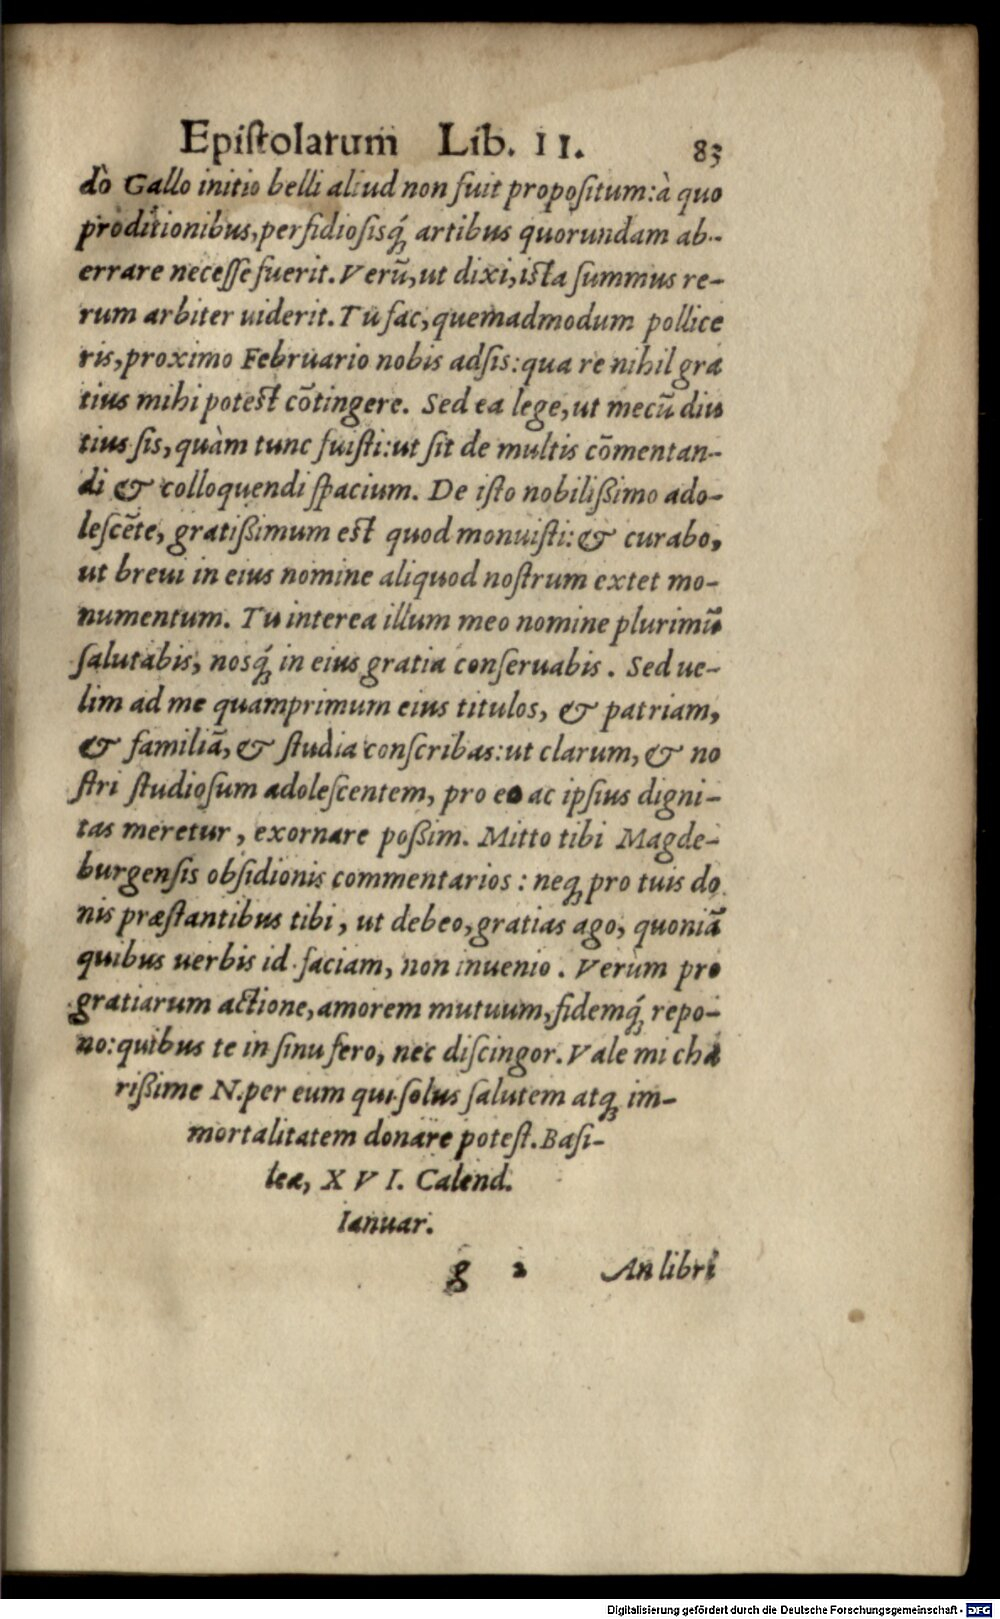 Epistolarum Lib. II. 83
dò Gallo initio belli aliud non fuit propositum: à quo
proditionibus, perfidiosisq́; artibus quorundam ab-
errare necesse fuerit. Verũ, ut dixi, ista summus re-
rum arbiter uiderit. Tu fac, quemadmodum pollice
ris, proximo Februario nobis adsis: qua re nihil gra
tius mihi potest cõtingere. Sed ea lege, ut mecũ diu
tius sis, quàm tunc fuisti: ut sit de multis cõmentan-
di & colloquendi spacium. De isto nobilißimo ado-
lescẽte, gratißimum est quod monuisti: & curabo,
ut breui in eius nomine aliquod nostrum extet mo-
numentum. Tu interea illum meo nomine plurimũ
salutabis, nosq́; in eius gratia conseruabis. Sed ue-
lim ad me quamprimum eius titulos, & patriam,
& familiã, & studia conscribas: ut clarum, & no
stri studiosum adolescentem, pro eo ac ipsius digni-
tas meretur, exornare poßim. Mitto tibi Magde-
burgensis obsidionis commentarios: neq; pro tuis do
nis præstantibus tibi, ut debeo, gratias ago, quoniã
quibus uerbis id faciam, non inuenio. Verùm pro
gratiarum actione, amorem mutuum, fidemq́; repo-
no: quibus te in sinu fero, nec discingor. Vale mi cha
rißime N. per eum qui solus salutem atq; im-
mortalitatem donare potest. Basi-
leæ, XVI. Calend.
Ianuar.
g 2 An libri
Digitalisierung gefördert durch die Deutsche Forschungsgemeinschaft - DFG